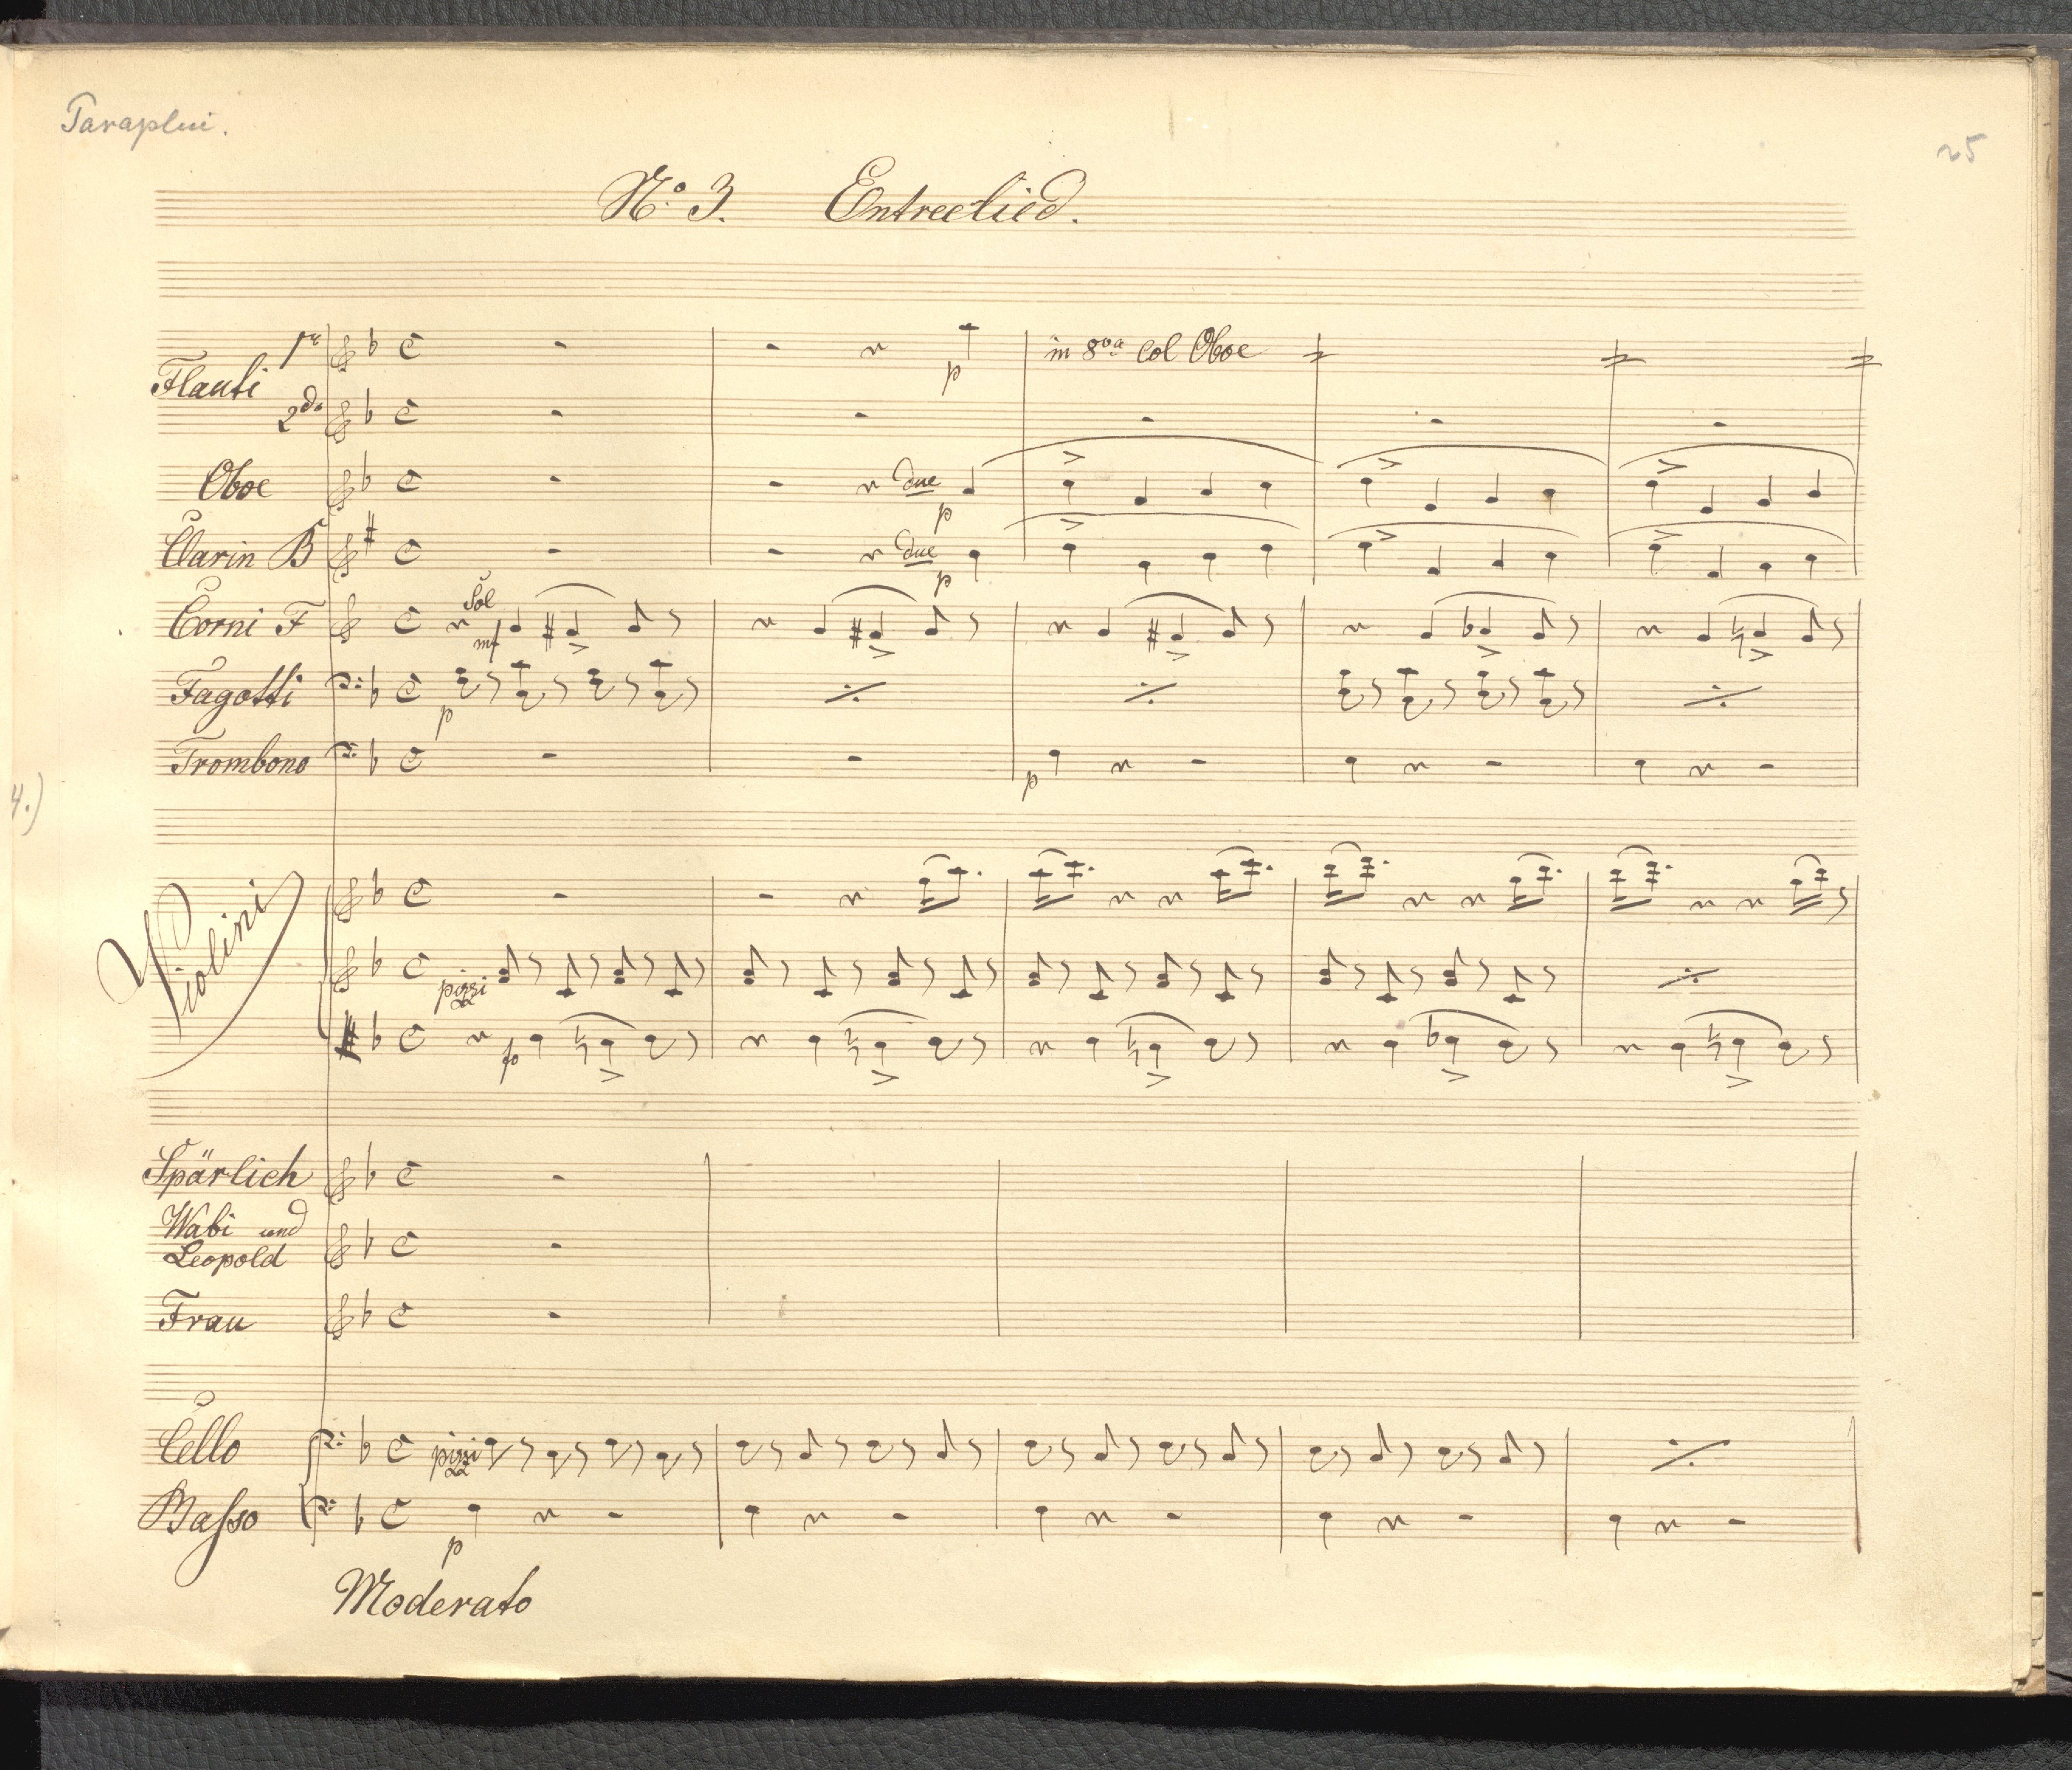 Paraplui.
25
No. 3. Entreelied.
Flauti 1mo
in 8va col Oboe
p
2do
Oboe
due
p
Clarin B
due
p
Corni F
Sol
mf
Fagotti
p
Trombono
p
4.)
Violini
pizzi
fp
Spärlich
Wabi und
Leopold
Frau
Cello
pizzi
Basso
p
Moderato